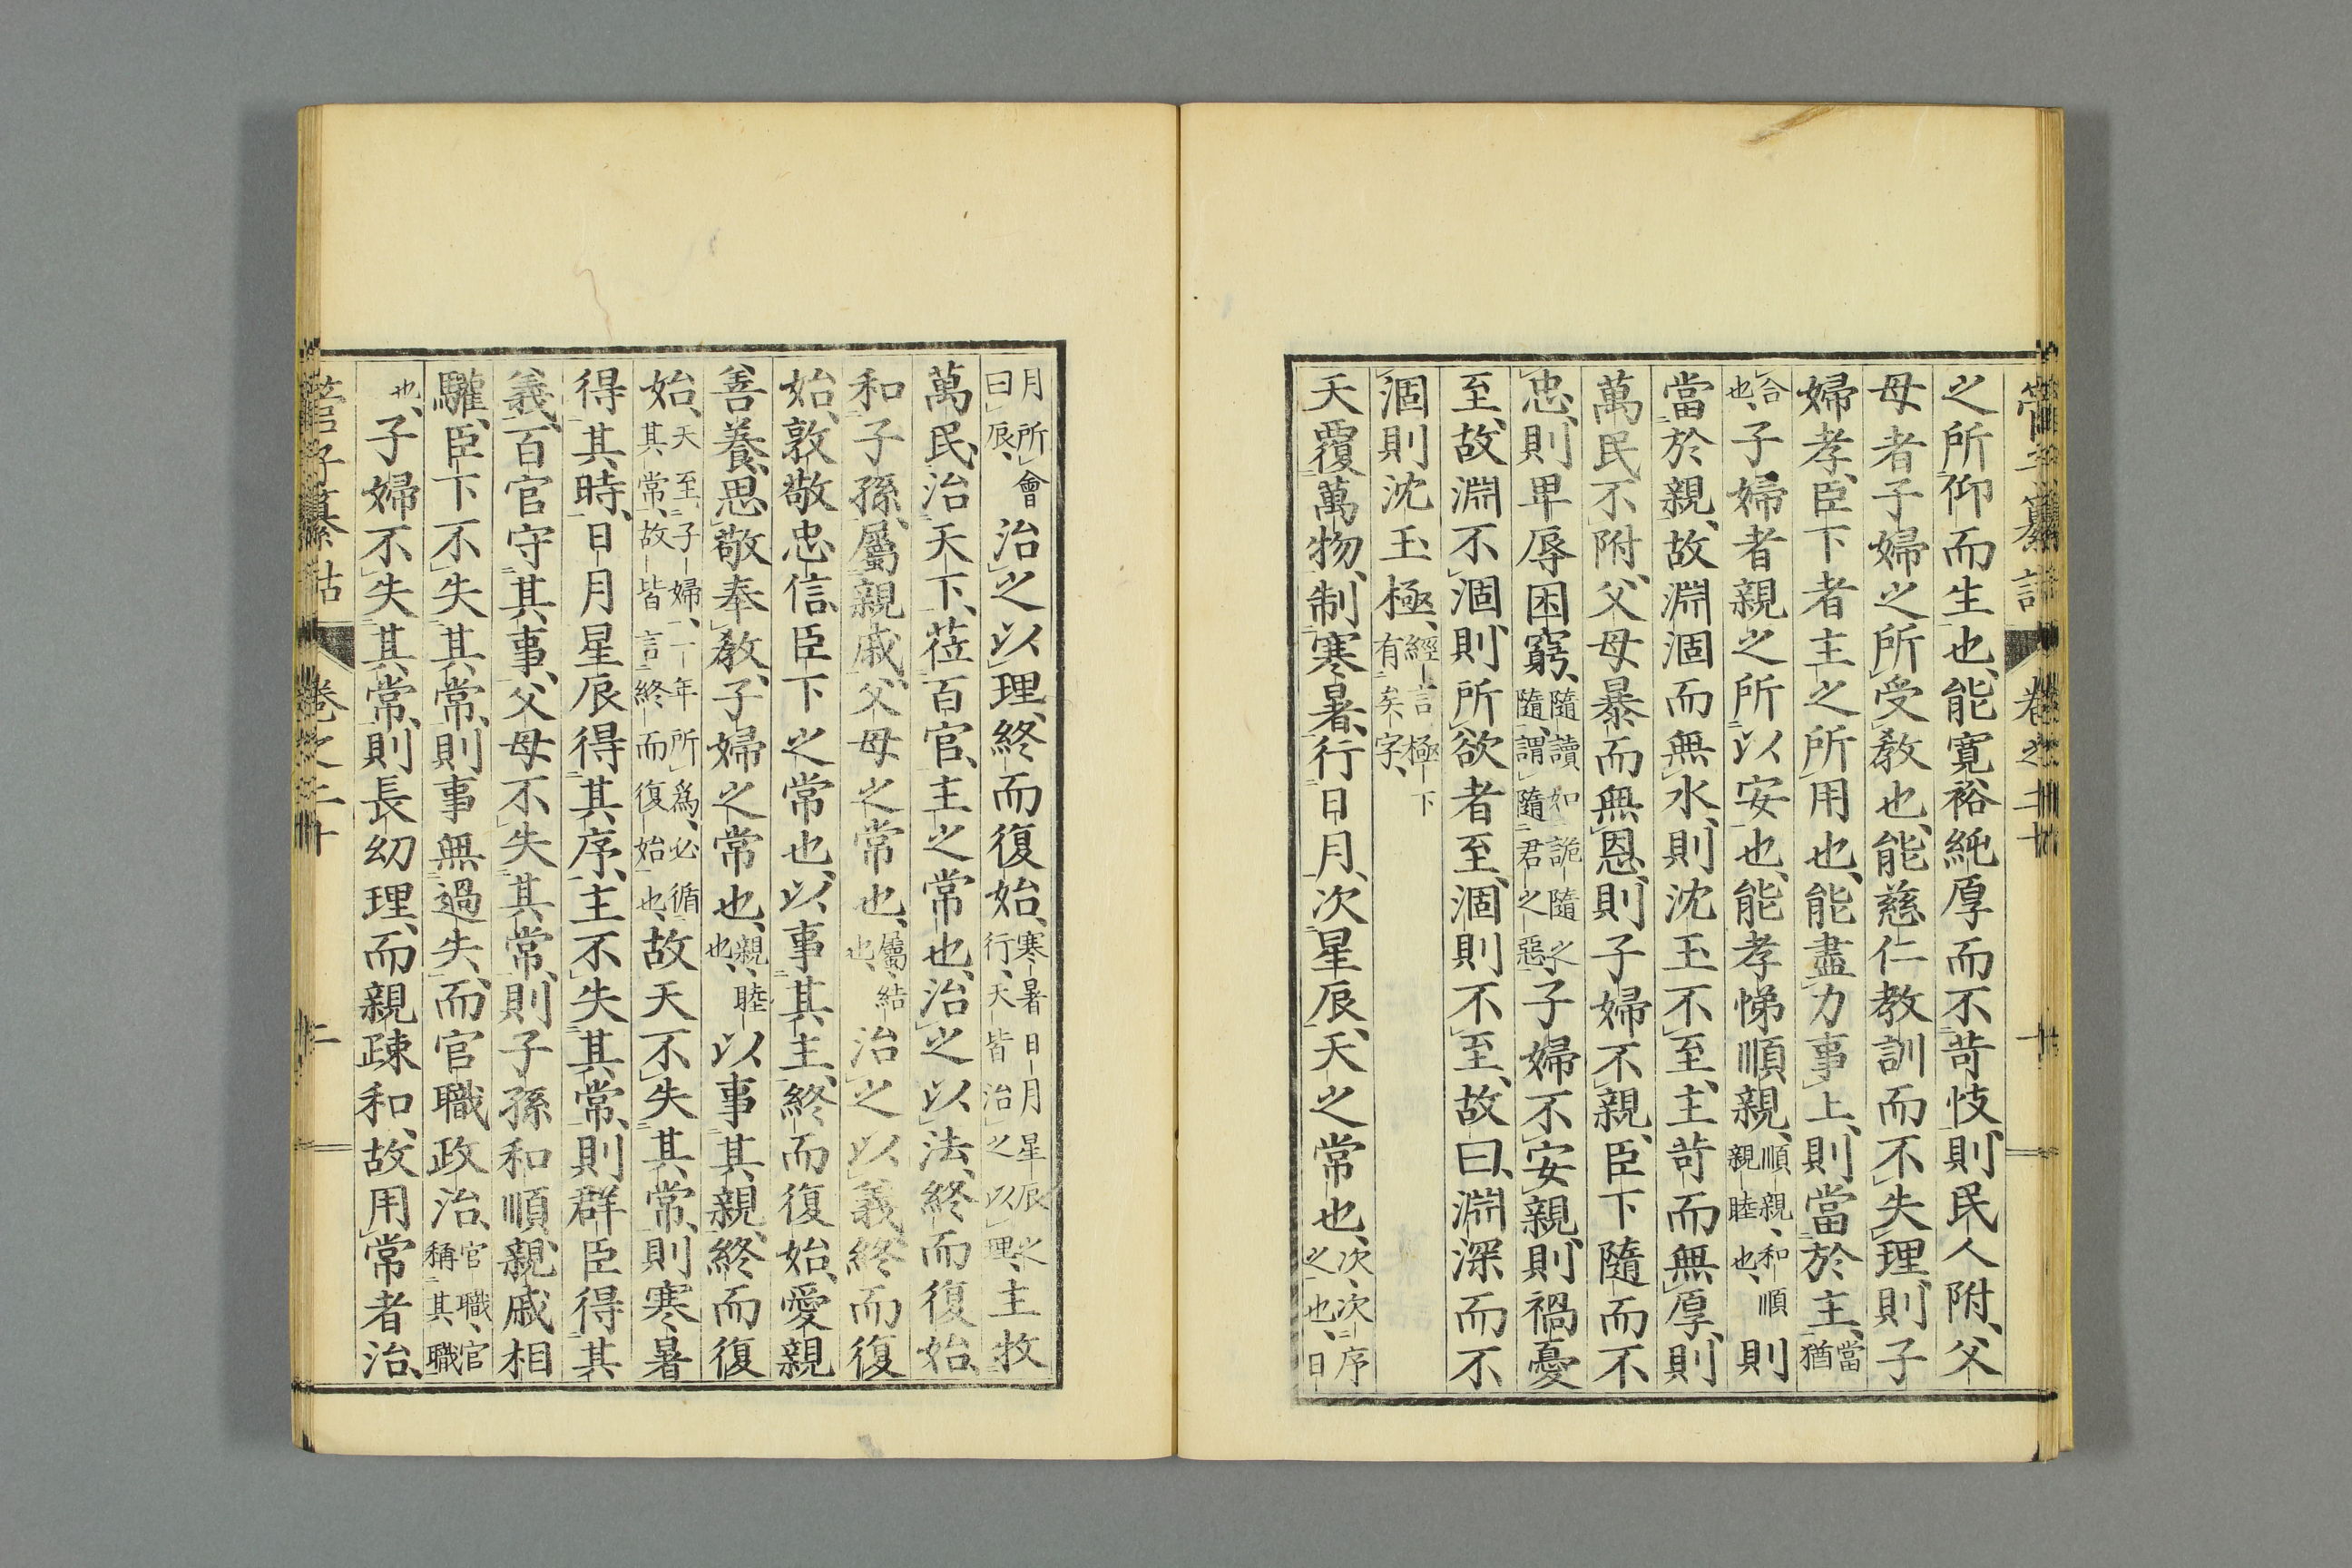 管子纂詁 卷之二十
之所仰而生也、能寬裕純厚而不苛忮、則民人附、父
母者子婦之所受教也、能慈仁教訓而不失理、則子
婦孝、臣下者主之所用也、能盡力事上、則當於主、當猶
合也、子婦者親之所以安也、能孝悌順親、順親、和順親睦也、則
當於親、故淵涸而無水、則沈玉不至、主苛而無厚、則
萬民不附、父母暴而無恩、則子婦不親、臣下隨而不
忠、則卑辱困窮、隨讀如詭隨之隨、謂隨君之惡、子婦不安親、則禍憂
至、故淵不涸、則所欲者至、涸則不至、故曰、淵深而不
涸則沈玉極、經言極下有矣字、
天覆萬物、制寒暑、行日月、次星辰、天之常也、次、次序之也、日
月所會曰辰、治之以理、終而復始、寒暑日月星辰之行、天皆治之以理、主牧
萬民、治天下、莅百官、主之常也、治之以法、終而復始、
和子孫、屬親戚、父母之常也、屬、結也、治之以義、終而復
始、敦敬忠信、臣下之常也、以事其主、終而復始、愛親
善養、思敬奉教、子婦之常也、親、睦也、以事其親、終而復
始、天至子婦、一年所爲、必循其常、故皆言終而復始也、故天不失其常、則寒暑
得其時、日月星辰得其序、主不失其常、則群臣得其
義、百官守其事、父母不失其常、則子孫和順、親戚相
驩、臣下不失其常、則事無過失、而官職政治、官職、官稱其職
也、子婦不失其常、則長幼理、而親疎和、故用常者治、
管子纂詁 卷之二十 二